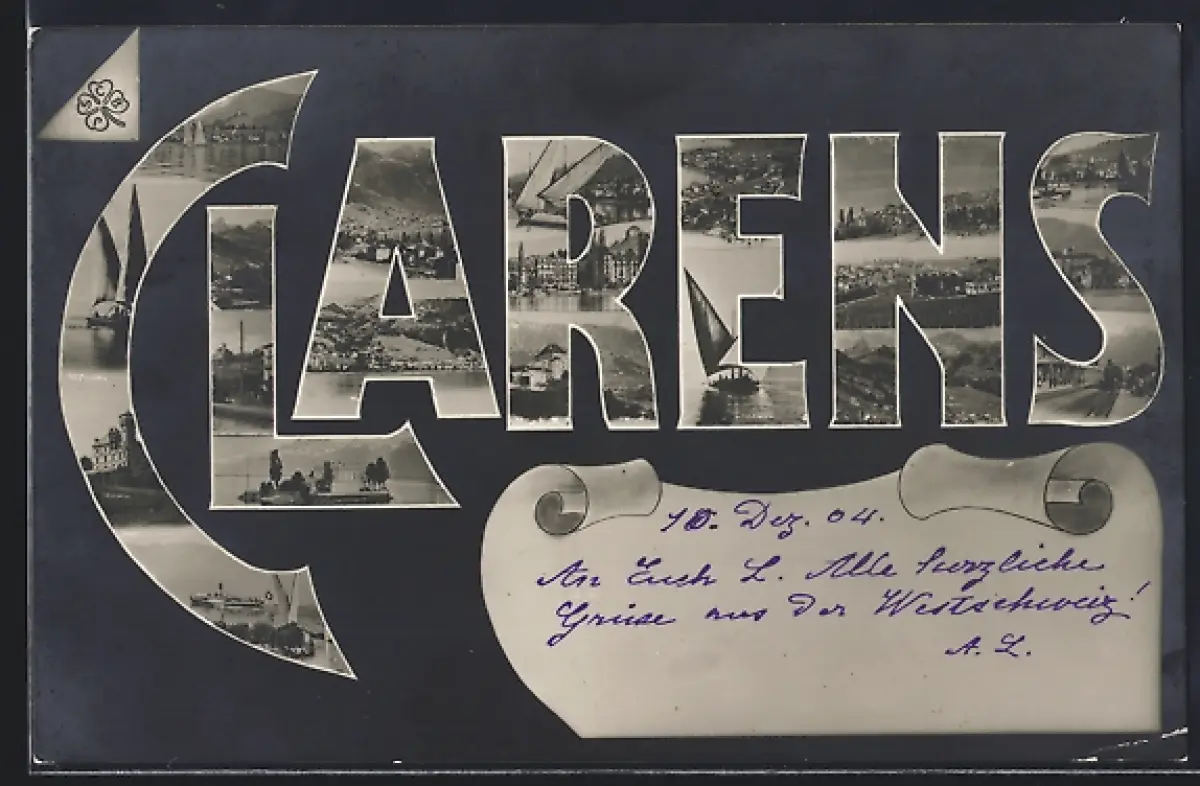 CLARENS
10. Dez. 04.
An Euch L. Alle herzliche
Grüsse aus der Westschweiz!
A. L.